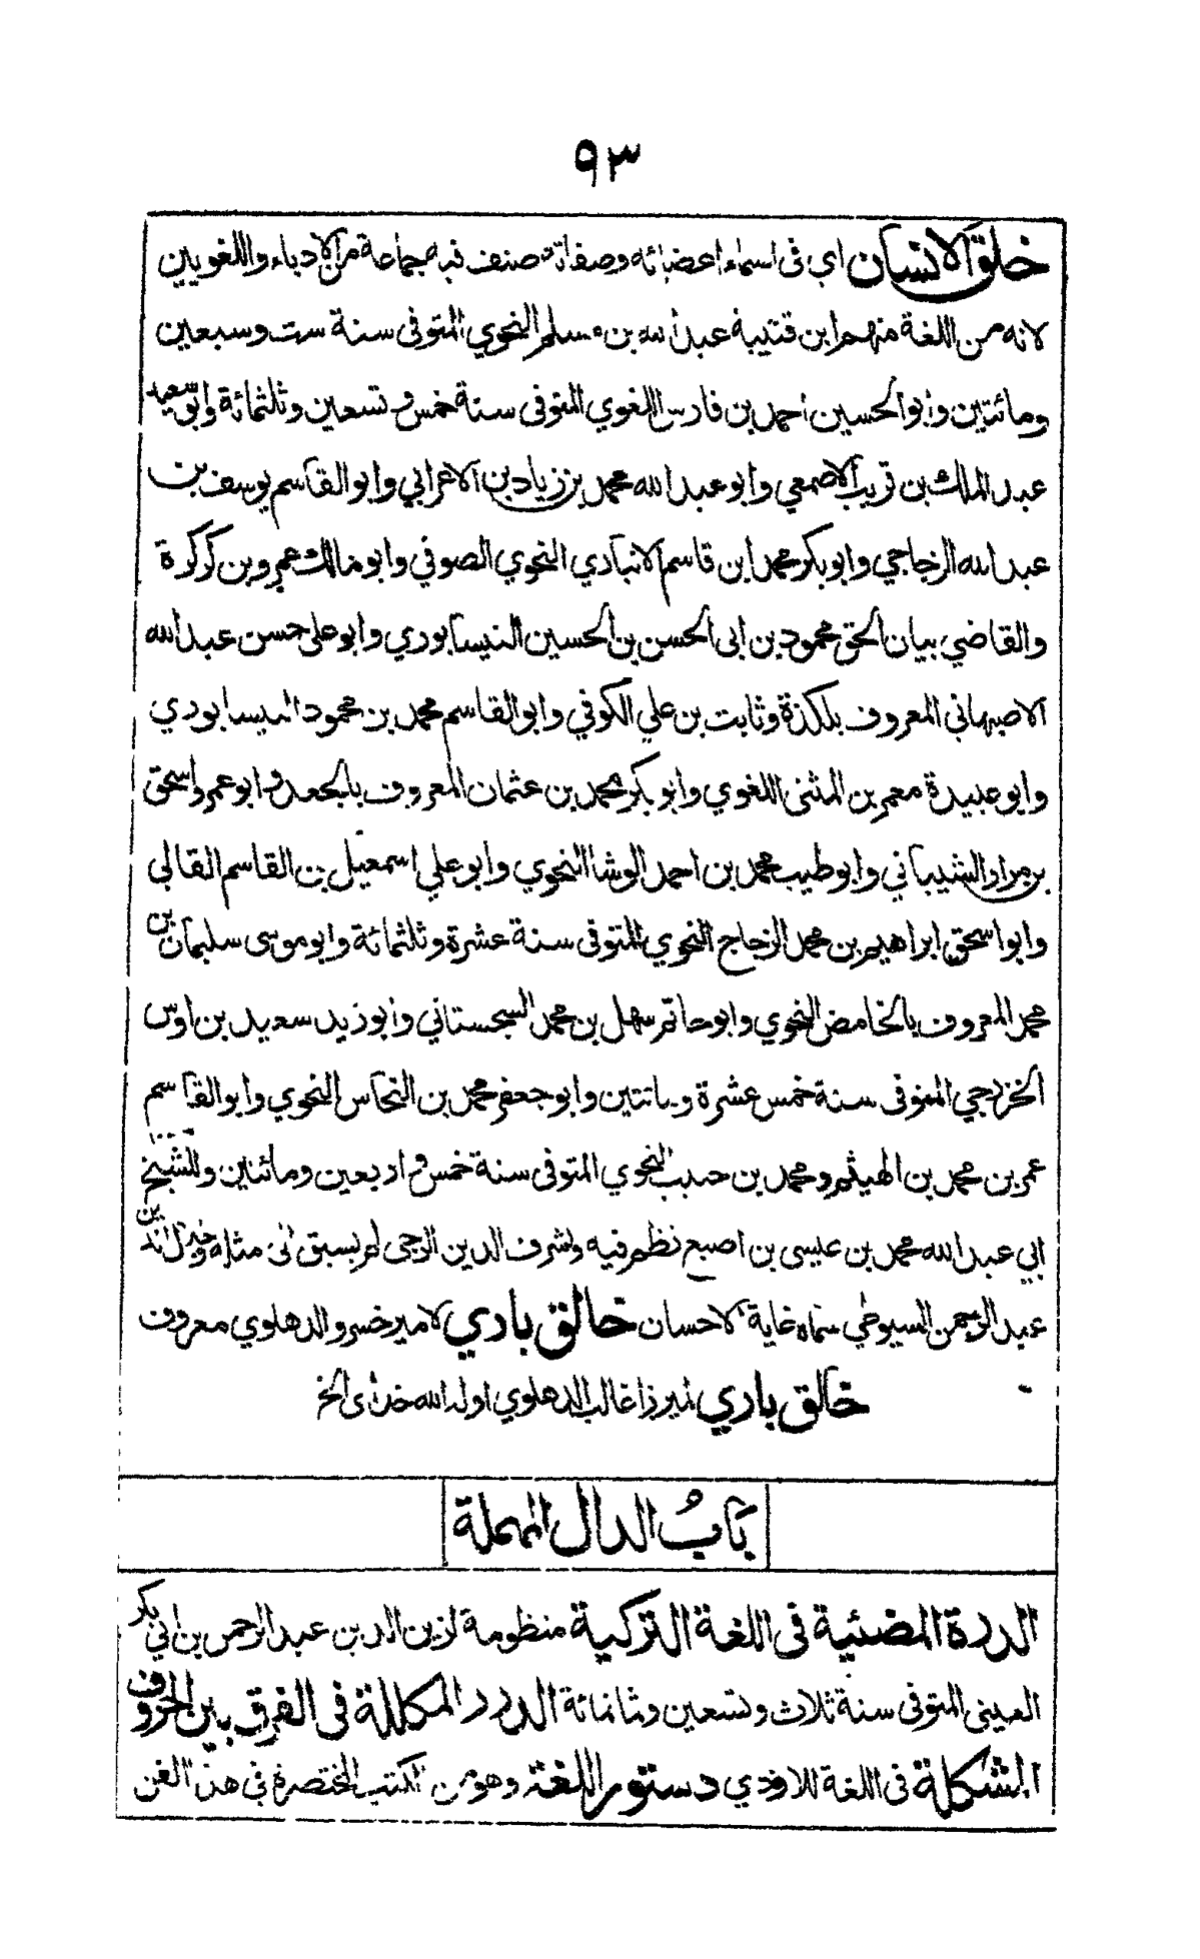 ٩٣
خلق الانسان اي في اسماء اعضائه وصفاته صنف فيه جماعة من الادباء واللغويين
لانه من اللغة منهم ابن قتيبة عبد الله بن مسلم النحوي المتوفى سنة ست وسبعين
ومائتين وابو الحسين احمد بن فارس اللغوي المتوفى سنة خمس وتسعين وثلثمائة وابو سعيد
عبد الملك بن قريب الاصمعي وابو عبد الله محمد بن زياد بن الاعرابي وابو القاسم يوسف بن
عبد الله الزجاجي وابو بكر محمد ابن قاسم الانباري النحوي الصوفي وابو مالك عمرو بن كركرة
والقاضي بيان الحق محمود بن ابى الحسن بن الحسين النيسابوري وابو على حسن عبد الله
الاصبهاني المعروف بلكذة وثابت بن علي الكوفي وابو القاسم محمد بن محمود النيسابوري
وابو عبيدة معمر بن المثنى اللغوي وابو بكر محمد بن عثمان المعروف بالجعد وابو عمرو اسحق
بن مرار الشيباني وابو طيب محمد بن احمد الوشا النحوي وابو علي اسمعيل بن القاسم القالى
وابو اسحق ابراهيم بن محمد الزجاج النحوي المتوفى سنة عشرة وثلثمائة وابو موسى سليمان بن
محمد المعروف بالحامض النحوي وابو حاتم سهل بن محمد السجستاني وابو زيد سعيد بن اوس
الخزرجي المتوفى سنة خمس عشرة ومائتين وابو جعفر محمد بن النحاس النحوي وابو القاسم
عمر بن محمد بن الهيثم ومحمد بن حبيب النحوي المتوفى سنة خمس واربعين ومائتين وللشيخ
ابي عبد الله محمد بن عيسى بن اصبع نظم فيه ولشرف الدين الرحبى لم يسبق الى مثله وجلال الدين
عبد الرحمن السيوطي سماه غاية الاحسان خالق باري لامير خسرو الدهلوي معروف
خالق باري لميرزا غالب الدهلوي اوله الله خداى الخ
بَابُ الدال المهملة
الدرة المضئية في اللغة التركية منظومة لزين الدين عبد الرحمن بن ابي بكر
العينى المتوفى سنة ثلاث وتسعين وثمانمائة الدرر المكللة في الفرق بين الحروف
المشكلة في اللغة للاوذي دستور اللغة وهو من الكتب المختصرة في هذا الفن